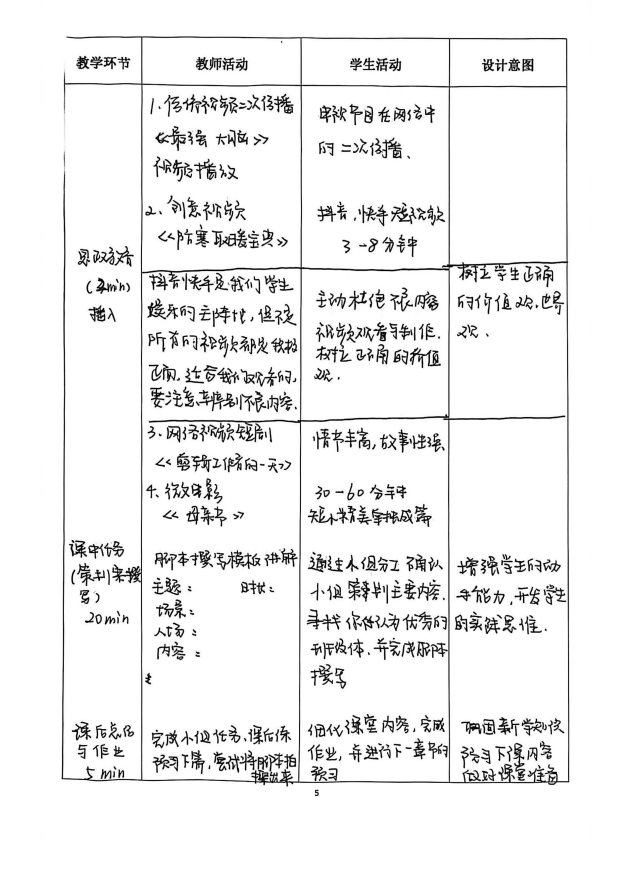 教学环节 教师活动 学生活动 设计意图
1、传统视频二次传播
《最强大脑》
视频播放
2、创意视频
《防寒取暖宝典》
电视节目在网络中
的二次传播、
抖音,快手短视频
3-8分钟
思政教育
(2min)
插入
抖音快手是我们学生
娱乐的主阵地,但不是
所有的视频都是积极
正面,适合我们观看的,
要注意辨别不良内容.
主动杜绝不良内容
视频观看与制作.
树立正确的价值
观.
树立学生正确
的价值观.世界
观.
3、网络视频短剧
《剪辑工作者的一天》
4、微电影
《母亲节》
情节丰富,故事性强
30-60分钟
短小精美单独成篇
课中任务
(策划案撰
写)
20min
脚本撰写模板讲解
主题: 时长:
场景:
人物:
内容:
通过小组分工确认
小组策划主要内容.
寻找你们认为优秀的
班级体.并完成脚本
撰写
增强学生的动
手能力,开发学生
的实践思维.
课后总结
与作业
5 min
完成小组任务、课后练
预习下篇,尝试将脚本拍
摄出来
细化课堂内容,完成
作业,并进行下一章节的
预习
巩固新学知识
预习下课内容
做好课堂准备
5